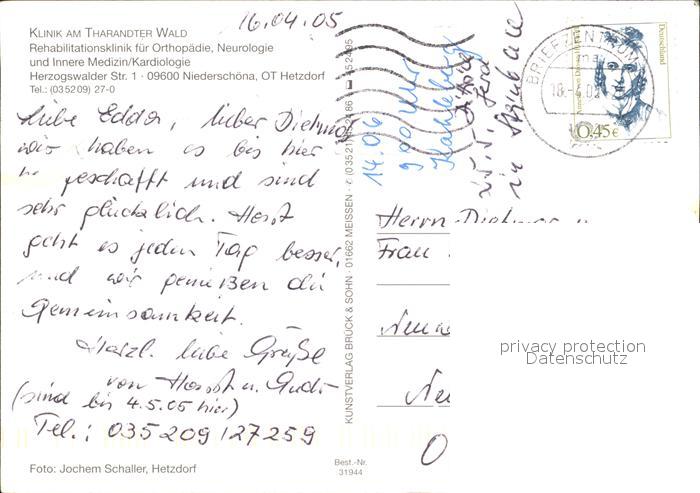 16.04.05
KLINIK AM THARANDTER WALD
Rehabilitationsklinik für Orthopädie, Neurologie
und Innere Medizin/Kardiologie
Herzogswalder Str. 1 · 09600 Niederschöna, OT Hetzdorf
Tel.: (03 52 09) 27-0
Liebe Edda, lieber Dietmar
wir haben es bis hier
geschafft und sind
sehr glücklich. Horst
geht es jeden Tag besser,
und wir genießen die
Gemeinsamkeit.
Herzl. liebe Grüße
von Horst u.
(sind bis 4.5.05 hier)
Tel.: 035209 127259
Foto: Jochem Schaller, Hetzdorf
KUNSTVERLAG BRÜCK & SOHN · 01662 MEISSEN
Best.-Nr.
31944
14.06
900 Uhr
Kahleberg
in
BRIEFZENTRUM
Deutschland
0,45€
Herrn Dietmar u
Frau
privacy protection
Datenschutz